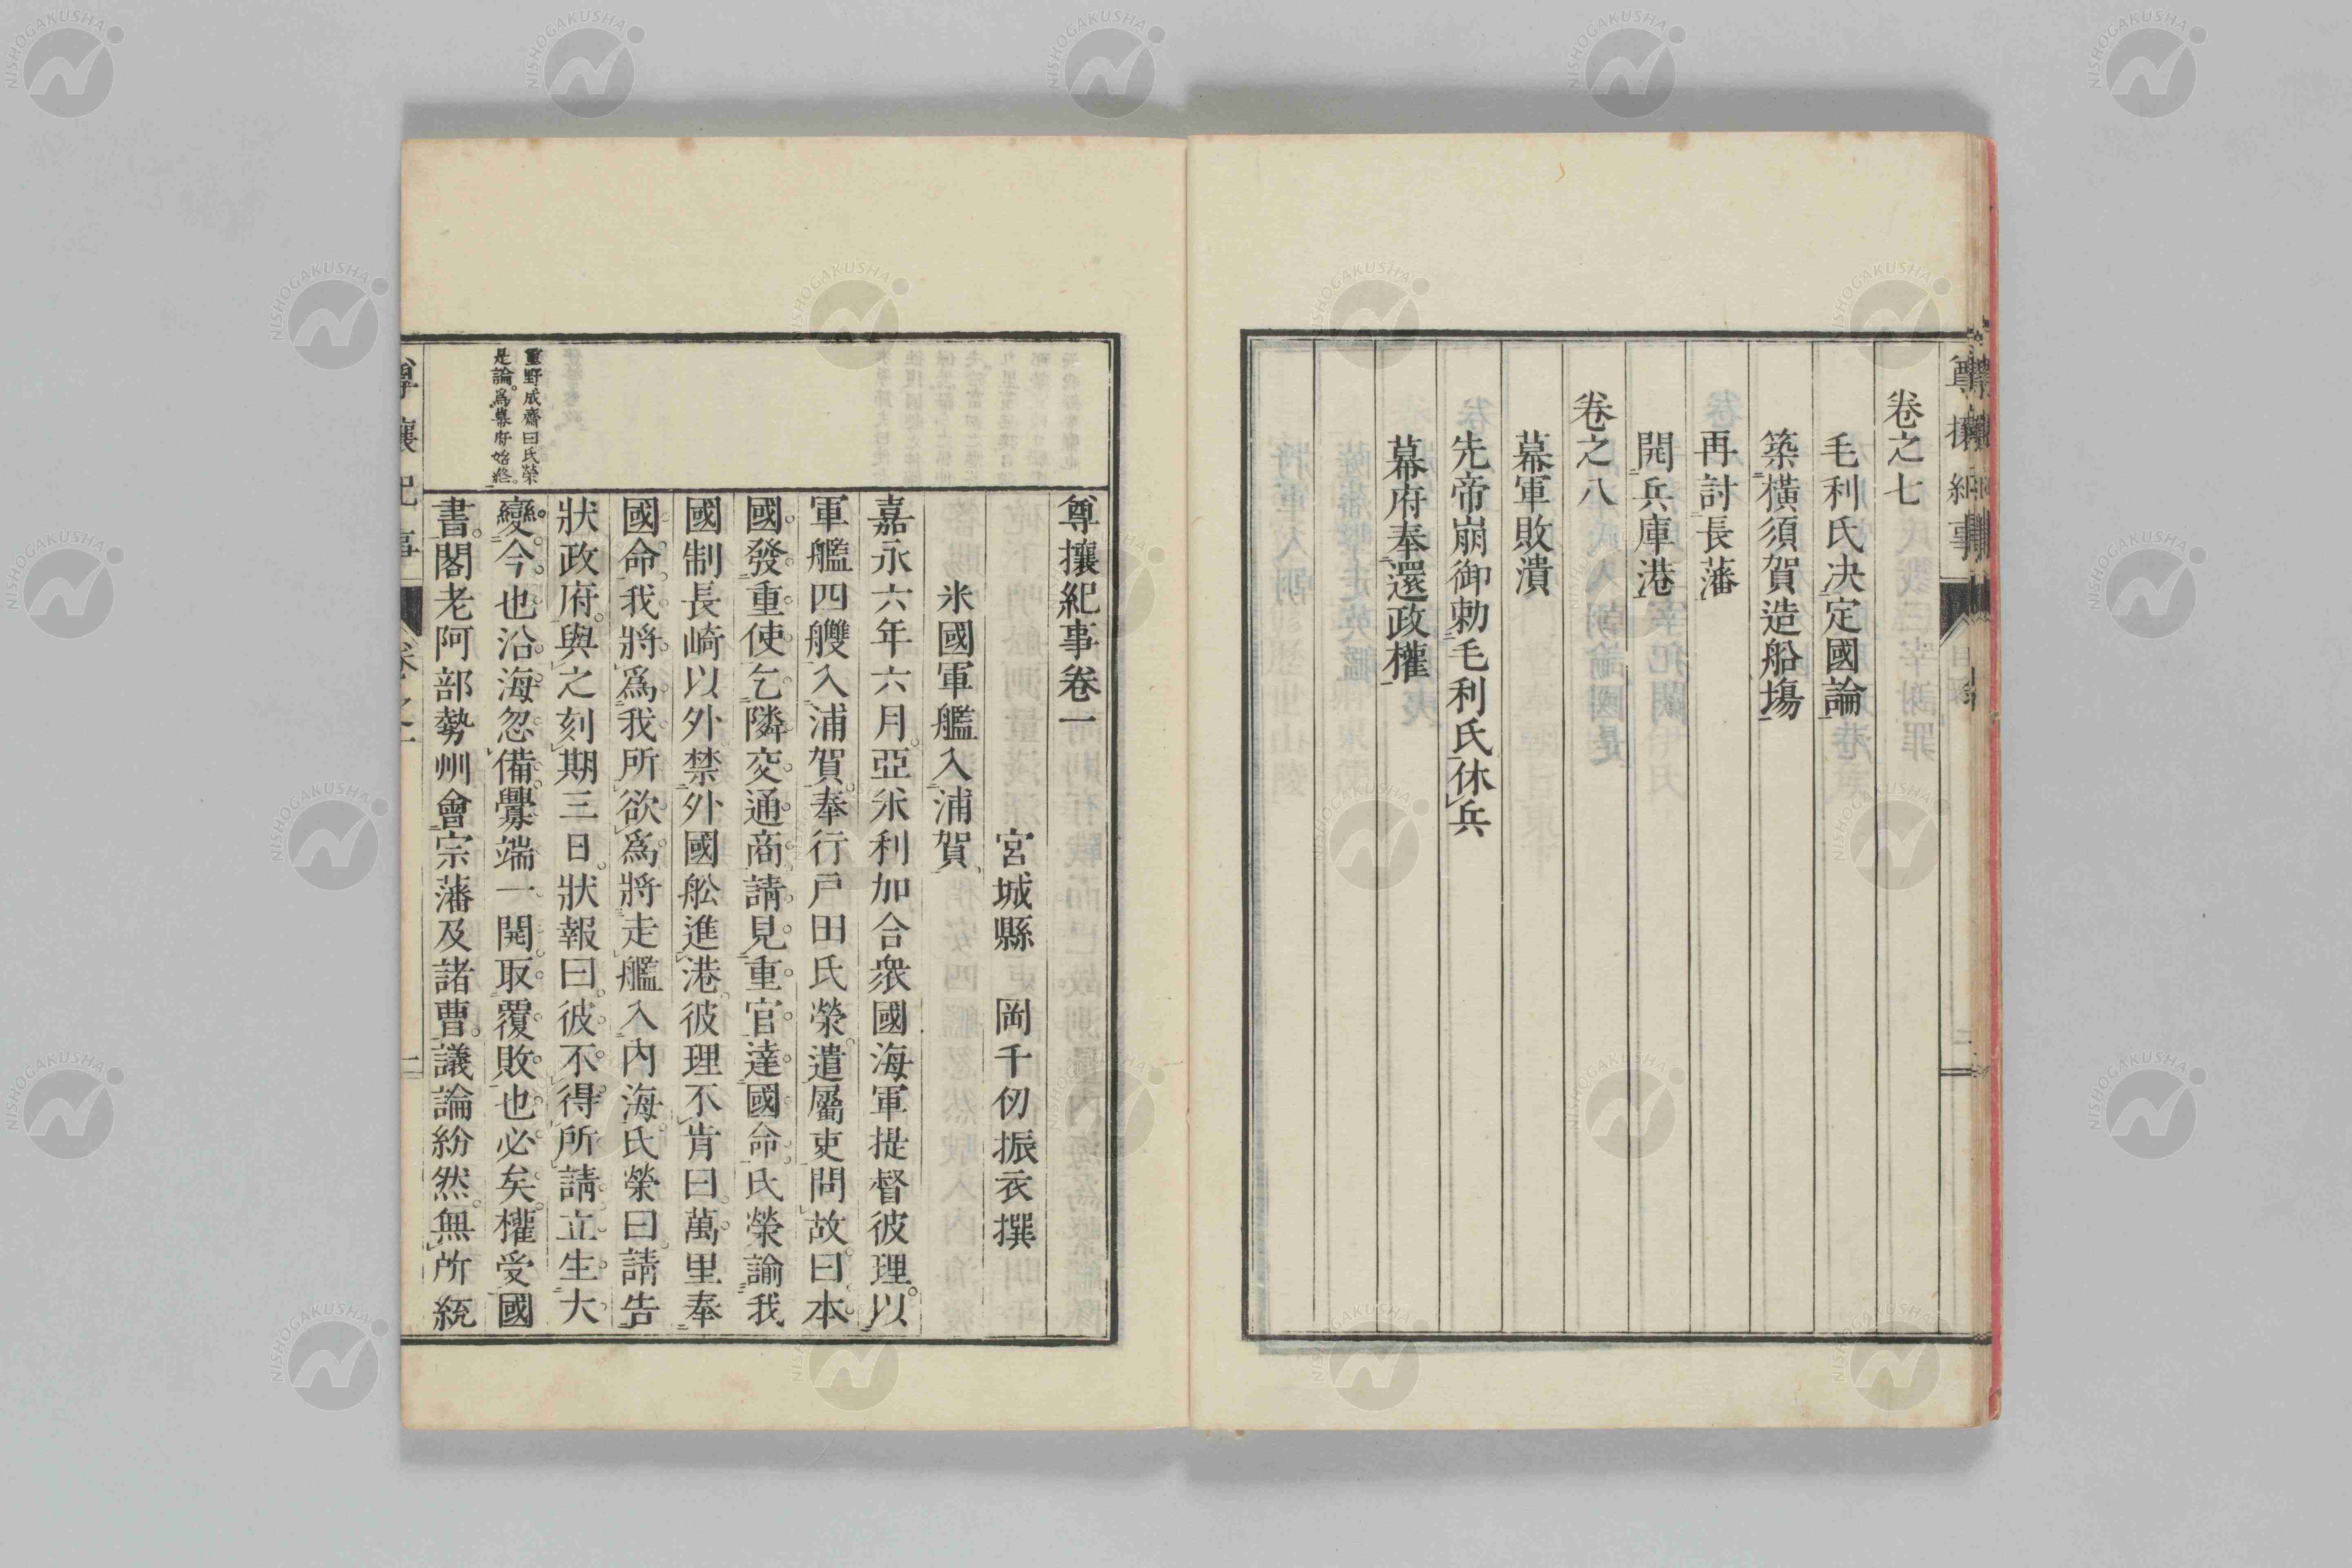 卷之七
毛利氏決定國論
築橫須賀造船塲
再討長藩
開兵庫港
卷之八
幕軍敗潰
先帝崩御勅毛利氏休兵
幕府奉還政權
尊攘紀事卷一
宮城縣 岡千仞振衣撰
米國軍艦入浦賀
嘉永六年六月亞米利加合衆國海軍提督彼理。以
軍艦四艘入浦賀。奉行戶田氏榮。遣屬吏問故。曰。本
國發重使乞隣交通商。請見重官達國命。氏榮諭我
國制長崎以外禁外國舩進港。彼理不肯曰。萬里奉
國命。我將爲我所欲爲。將走艦入內海。氏榮曰。請告
狀政府。與之刻期三日。狀報曰。彼不得所請。立生大
變。今也沿海忽備。釁端一開。取覆敗也必矣。權受國
書。閣老阿部勢州會宗藩及諸曹。議論紛然。無所統
重野成齋曰氏榮
是論。爲幕府始終。
NISHOGAKUSHA